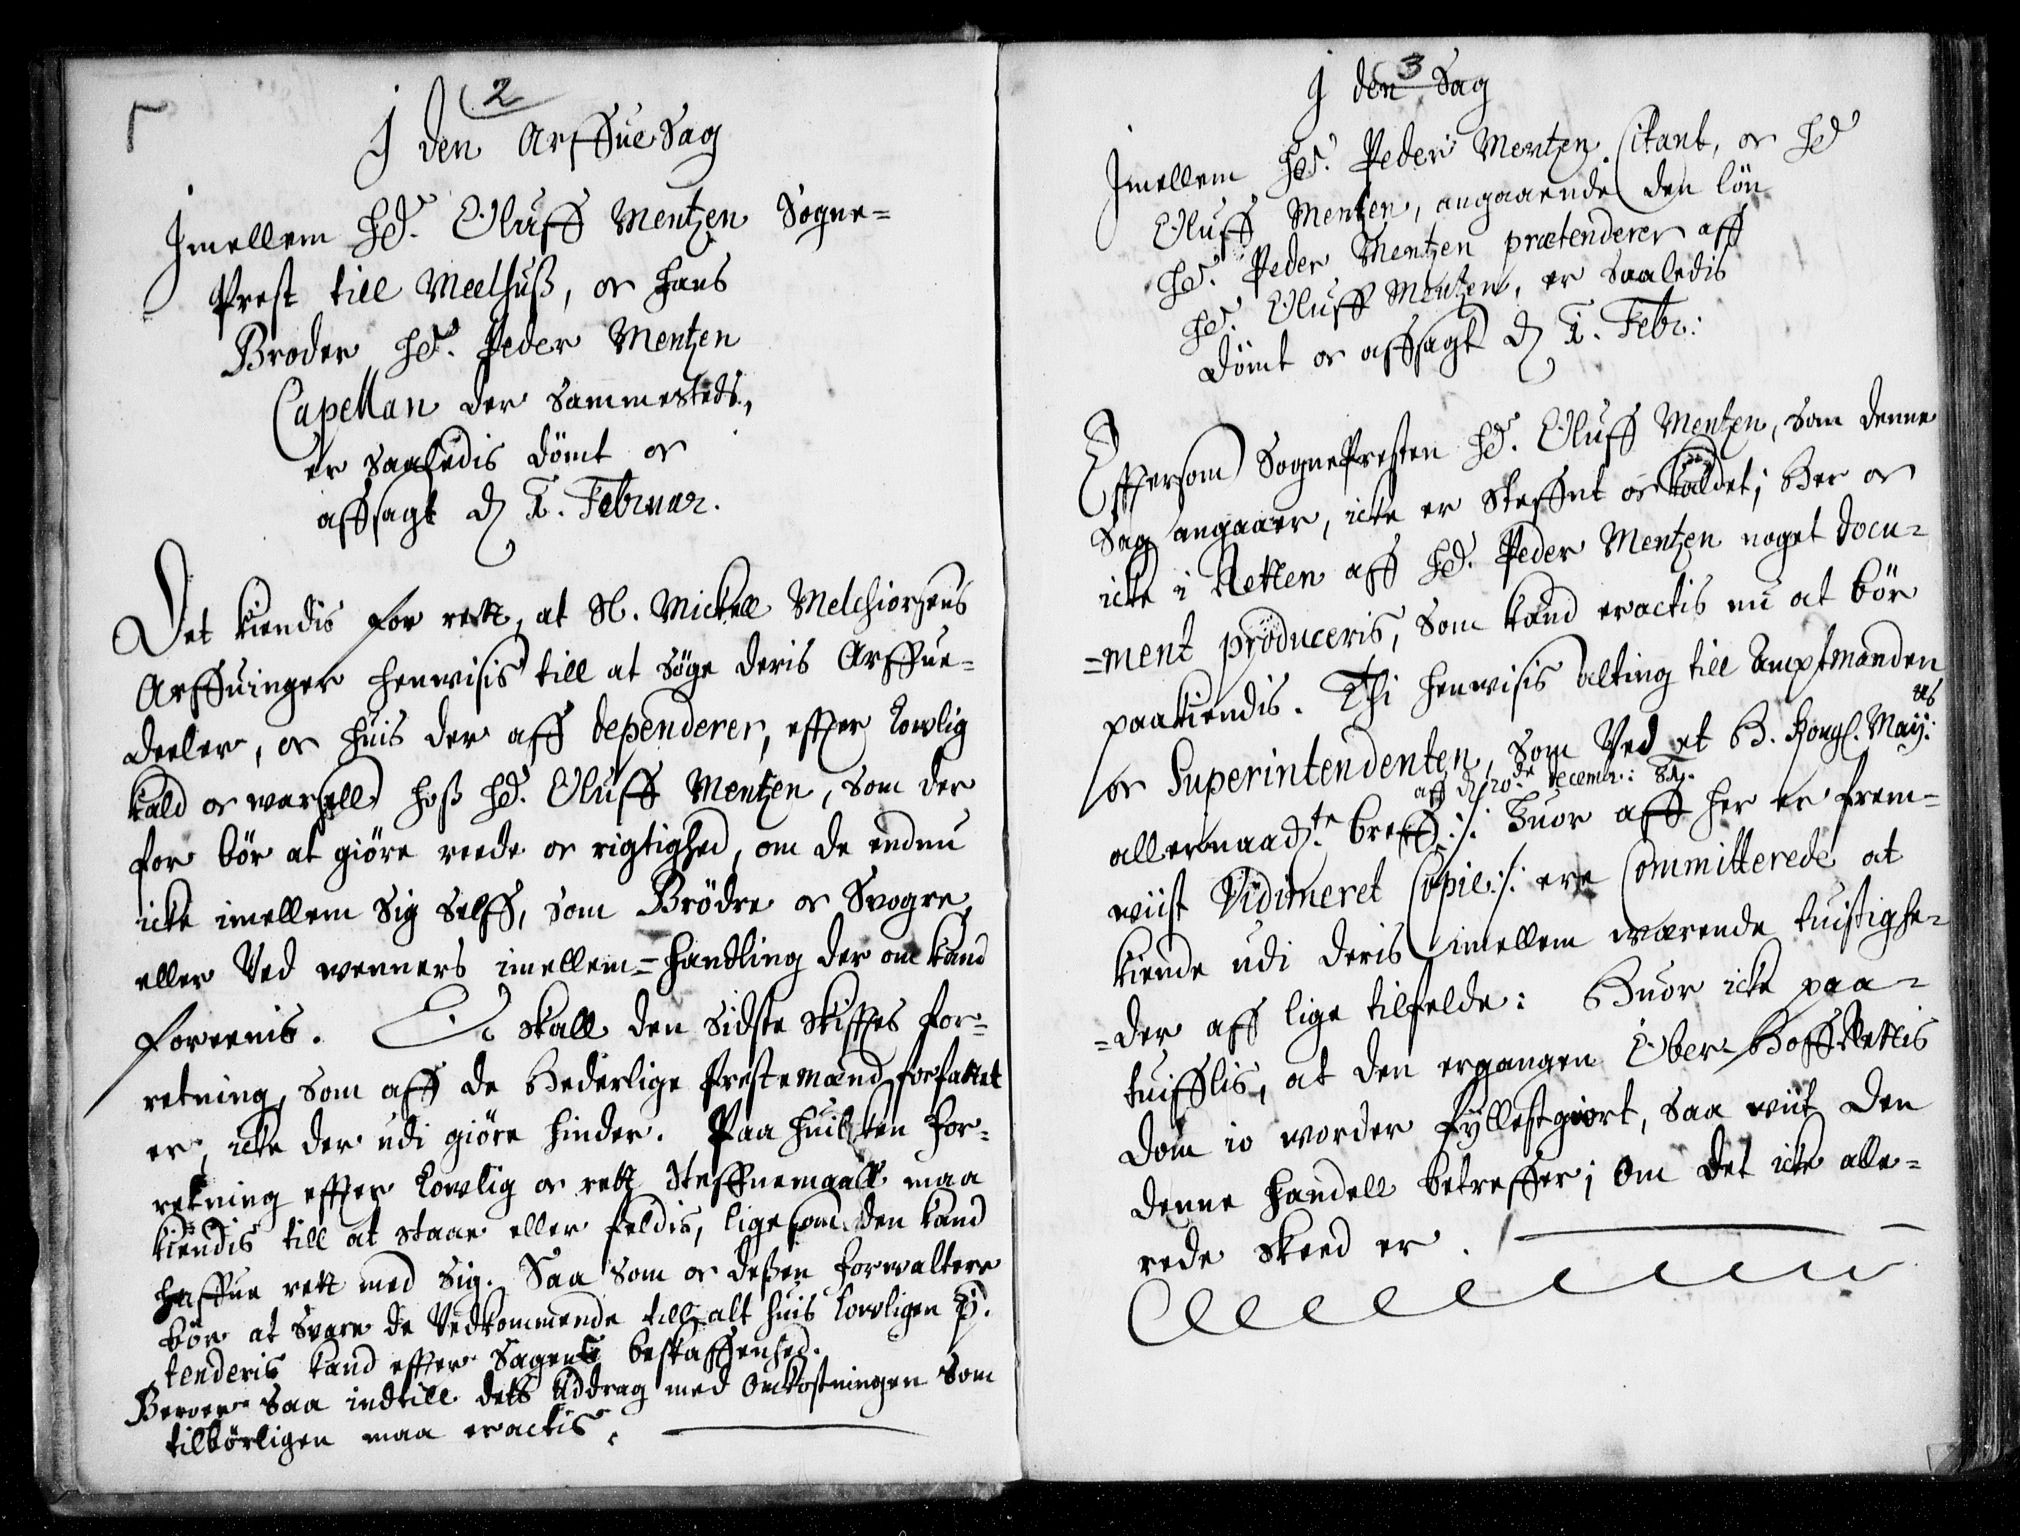 2
I den Arffue Sag
Imellem Hr. Oluff Mentzen Sogne=
Prest till Meelhuß, oc hans
Broder Hr. Peder Mentzen
Capellan der sammesteds,
er saaledis dömt oc
affsagt d. 1. Februar.
Det kiendis for rett, at Sl. Mickell Melchiorsens
Arffuinger henwisis till at söge deris Arffue=
deeler, oc huis der aff dependerer, effter Lowlig
kald oc warsell hoß Hr. Oluff Mentzen, som der
for bör at giöre reede oc rigtighed, om de endnu
icke imellem sig selff, som Brödre oc Svogre,
eller Ved wenners imellem=handling der om kand
foreenis. Oc skall den sidste skifftes for=
retning, som aff de Hederlige Prestemænd forfattet
er, icke der udi giöre hinder. Paa huilcken for=
retning effter Lowlig oc rett Steffnemaall maa
kiendis till at staae eller feldis, ligesom den kand
haffue rett med sig. Saa som oc deßen forwaltere
bör at svare de Vedkommende till alt huis Lowligen p.
tenderis kand effter Sagens beskaffenhed.
Beroer saa indtill dets Uddrag med Omkostningen som
tilbörligen maa eractis.
3
I den Sag
Imellem Hr. Peder Mentzen Citant, oc Hr.
Oluff Mentzen, angaaende den lön
Hr. Peder Mentzen prætenderer aff
Hr. Oluff Mentzen, er saaledis
dömt oc affsagt d. 1. Febr:
Efftersom SognePresten Hr. Oluff Mentzen, som denne
Sag angaaer, icke er steffnt oc kaldet; Her oc
icke i Retten aff Hr. Peder Mentzen noget Docu=
=ment produceris, som kand eractis nu at bör
paakiendis. Thi henwisis alting till Amptmanden
oc Superintendenten, som Ved et H. Kongl. Maij:ts
aff d. 20de Decembr:
allernaad.te breff :/: Huor aff her er frem=
wiist Vidimeret Copie:/: ere Committerede at
kiende udi deris imellem wærende tuistighe=
=der aff lige tilfelde: Huor icke paa=
tuifflis, at den ergangen Ober-HoffRettis
Dom io worder fyllestgiort, saa wiit den
denne handell betreffer; Om det icke alle=
rede skeed er.